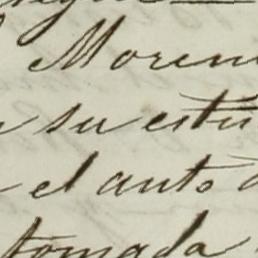 Moren
su estu
el auto
tomada